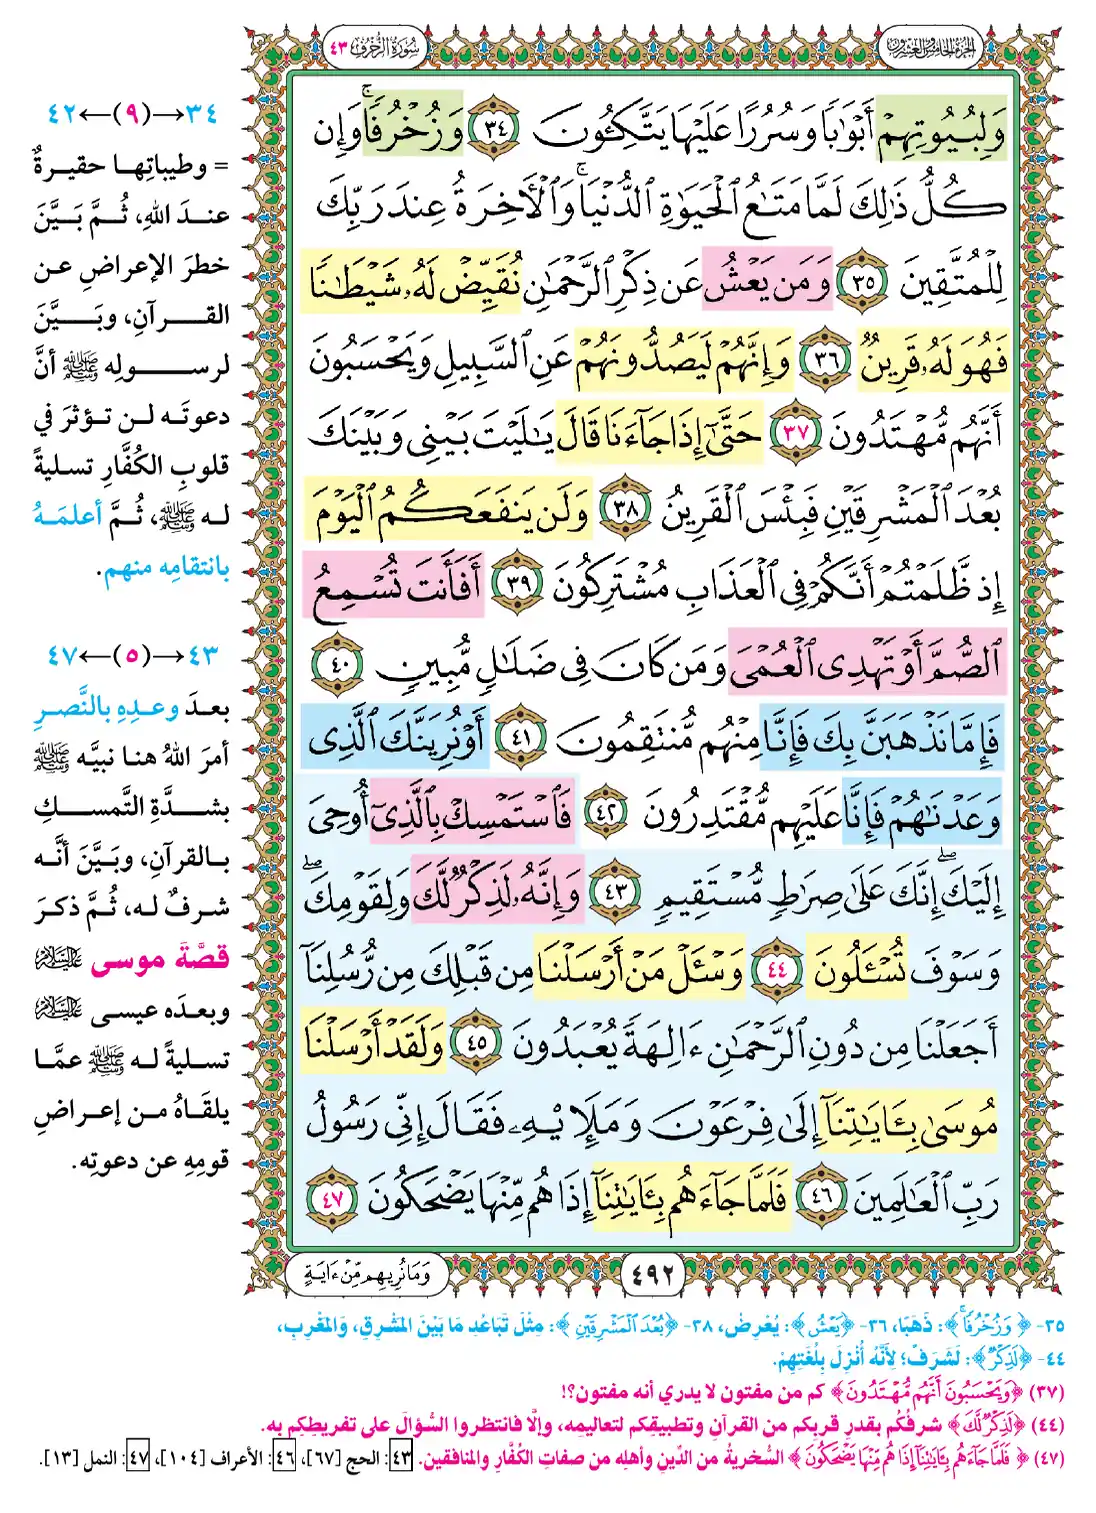 الجزء الخامس والعشرون
سورة الزخرف ٤٣
وَلِبُيُوتِهِمْ أَبْوَٰبًا وَسُرُرًا عَلَيْهَا يَتَّكِـُٔونَ ٣٤ وَزُخْرُفًا ۚ وَإِن
كُلُّ ذَٰلِكَ لَمَّا مَتَـٰعُ ٱلْحَيَوٰةِ ٱلدُّنْيَا ۚ وَٱلْـَٔاخِرَةُ عِندَ رَبِّكَ
لِلْمُتَّقِينَ ٣٥ وَمَن يَعْشُ عَن ذِكْرِ ٱلرَّحْمَـٰنِ نُقَيِّضْ لَهُۥ شَيْطَـٰنًا
فَهُوَ لَهُۥ قَرِينٌ ٣٦ وَإِنَّهُمْ لَيَصُدُّونَهُمْ عَنِ ٱلسَّبِيلِ وَيَحْسَبُونَ
أَنَّهُم مُّهْتَدُونَ ٣٧ حَتَّىٰٓ إِذَا جَآءَنَا قَالَ يَـٰلَيْتَ بَيْنِى وَبَيْنَكَ
بُعْدَ ٱلْمَشْرِقَيْنِ فَبِئْسَ ٱلْقَرِينُ ٣٨ وَلَن يَنفَعَكُمُ ٱلْيَوْمَ
إِذ ظَّلَمْتُمْ أَنَّكُمْ فِى ٱلْعَذَابِ مُشْتَرِكُونَ ٣٩ أَفَأَنتَ تُسْمِعُ
ٱلصُّمَّ أَوْ تَهْدِى ٱلْعُمْىَ وَمَن كَانَ فِى ضَلَـٰلٍ مُّبِينٍ ٤٠
فَإِمَّا نَذْهَبَنَّ بِكَ فَإِنَّا مِنْهُم مُّنتَقِمُونَ ٤١ أَوْ نُرِيَنَّكَ ٱلَّذِى
وَعَدْنَـٰهُمْ فَإِنَّا عَلَيْهِم مُّقْتَدِرُونَ ٤٢ فَٱسْتَمْسِكْ بِٱلَّذِىٓ أُوحِىَ
إِلَيْكَ ۖ إِنَّكَ عَلَىٰ صِرَٰطٍ مُّسْتَقِيمٍ ٤٣ وَإِنَّهُۥ لَذِكْرٌ لَّكَ وَلِقَوْمِكَ ۖ
وَسَوْفَ تُسْـَٔلُونَ ٤٤ وَسْـَٔلْ مَنْ أَرْسَلْنَا مِن قَبْلِكَ مِن رُّسُلِنَآ
أَجَعَلْنَا مِن دُونِ ٱلرَّحْمَـٰنِ ءَالِهَةً يُعْبَدُونَ ٤٥ وَلَقَدْ أَرْسَلْنَا
مُوسَىٰ بِـَٔايَـٰتِنَآ إِلَىٰ فِرْعَوْنَ وَمَلَإِي۟هِۦ فَقَالَ إِنِّى رَسُولُ
رَبِّ ٱلْعَـٰلَمِينَ ٤٦ فَلَمَّا جَآءَهُم بِـَٔايَـٰتِنَآ إِذَا هُم مِّنْهَا يَضْحَكُونَ ٤٧
٤٩٢
وَمَا نُرِيهِم مِّنْ ءَايَةٍ
٣٤→(٩)←٤٢
= وطيباتِهـا حقيـرةٌ
عنـدَ اللهِ، ثُـمَّ بَـيَّنَ
خطرَ الإعراضِ عـن
القـرآنِ، وبَـيَّنَ
لرسـولِه ﷺ أنَّ
دعوتَـه لـن تـؤثرَ في
قلوبِ الكُفَّارِ تسليةً
لـه ﷺ، ثُـمَّ أعلمَـهُ
بانتقامِه منهم.
٤٣→(٥)←٤٧
بعـدَ وعـدِهِ بالنَّصـرِ
أمرَ اللهُ هنـا نبيَّـه ﷺ
بشـدَّةِ التَّمسـكِ
بـالقرآنِ، وبَـيَّنَ أنَّـه
شرفٌ لـه، ثُـمَّ ذكـرَ
قصَّةَ موسى عليه السلام
وبعـدَه عيسـى عليه السلام
تسـليةً لـه ﷺ عمَّـا
يلقَـاهُ مـن إعـراضِ
قومِهِ عن دعوتِه.
٣٥- ﴿وَزُخْرُفًا ۚ﴾: ذَهَبًا، ٣٦- ﴿يَعْشُ﴾: يُعْرِضْ، ٣٨- ﴿بُعْدَ ٱلْمَشْرِقَيْنِ﴾: مِثْلَ تَبَاعُدِ مَا بَيْنَ المَشْرِقِ، وَالمَغْرِبِ،
٤٤- ﴿لَذِكْرٌ﴾: لَشَرَفٌ؛ لِأَنَّهُ أُنْزِلَ بِلُغَتِهِمْ.
(٣٧) ﴿وَيَحْسَبُونَ أَنَّهُم مُّهْتَدُونَ﴾ كم من مفتون لا يدري أنه مفتون؟!
(٤٤) ﴿لَذِكْرٌ لَّكَ﴾ شرفُكُم بقدرِ قربكم من القرآنِ وتطبيقِكم لتعاليمِه، وإلَّا فانتظروا السُّؤالَ على تفريطِكم به.
(٤٧) ﴿فَلَمَّا جَآءَهُم بِـَٔايَـٰتِنَآ إِذَا هُم مِّنْهَا يَضْحَكُونَ﴾ السُّخريةُ من الدِّينِ وأهلِه من صفاتِ الكُفَّارِ والمنافقين. ٤٣: الحج [٦٧]، ٤٦: الأعراف [١٠٤]، ٤٧: النمل [١٣].